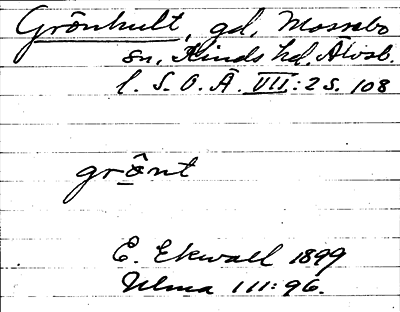 Grönhult, gd, Mossebo
sn, Kinds hd. Älvsb.
l. S. O. Ä. VII:2 s. 108
grönt
E. Ekwall 1899
Ulma 111:96.